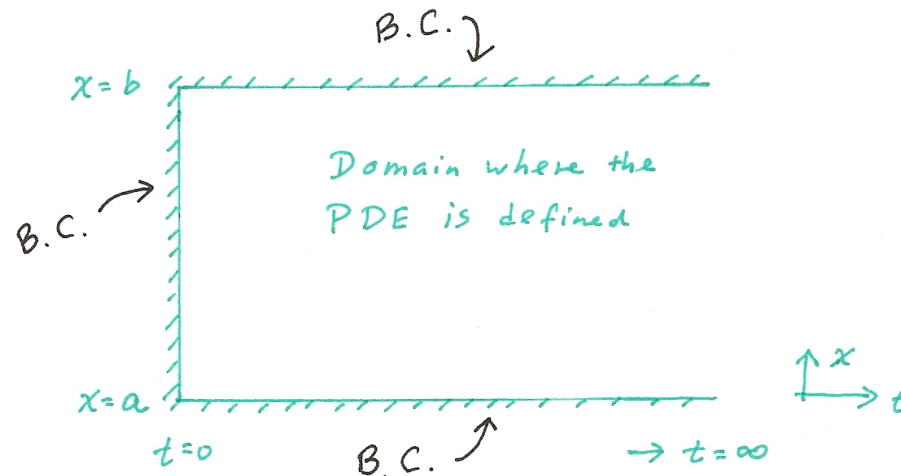 B.C.
x = b
Domain where the
PDE is defined
B.C.
x
x = a
t
t = 0
B.C.
→ t = ∞